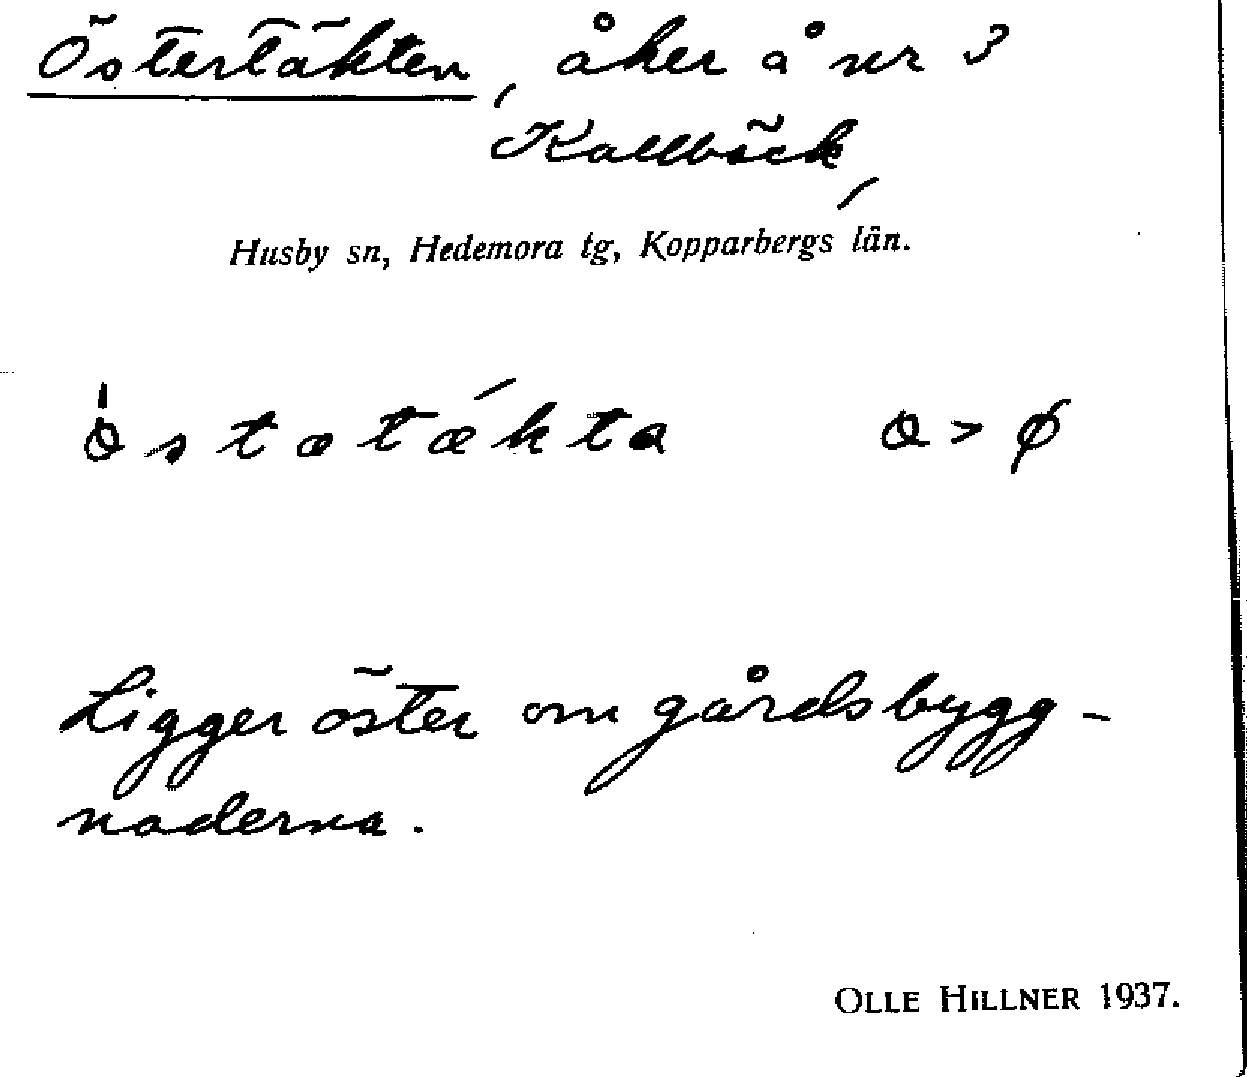 Östertäkten, åker å nr 3
Kallbäck,
Husby sn, Hedemora tg, Kopparbergs län.
Ligger öster om gårdsbygg-
naderna.
OLLE HILLNER 1937.